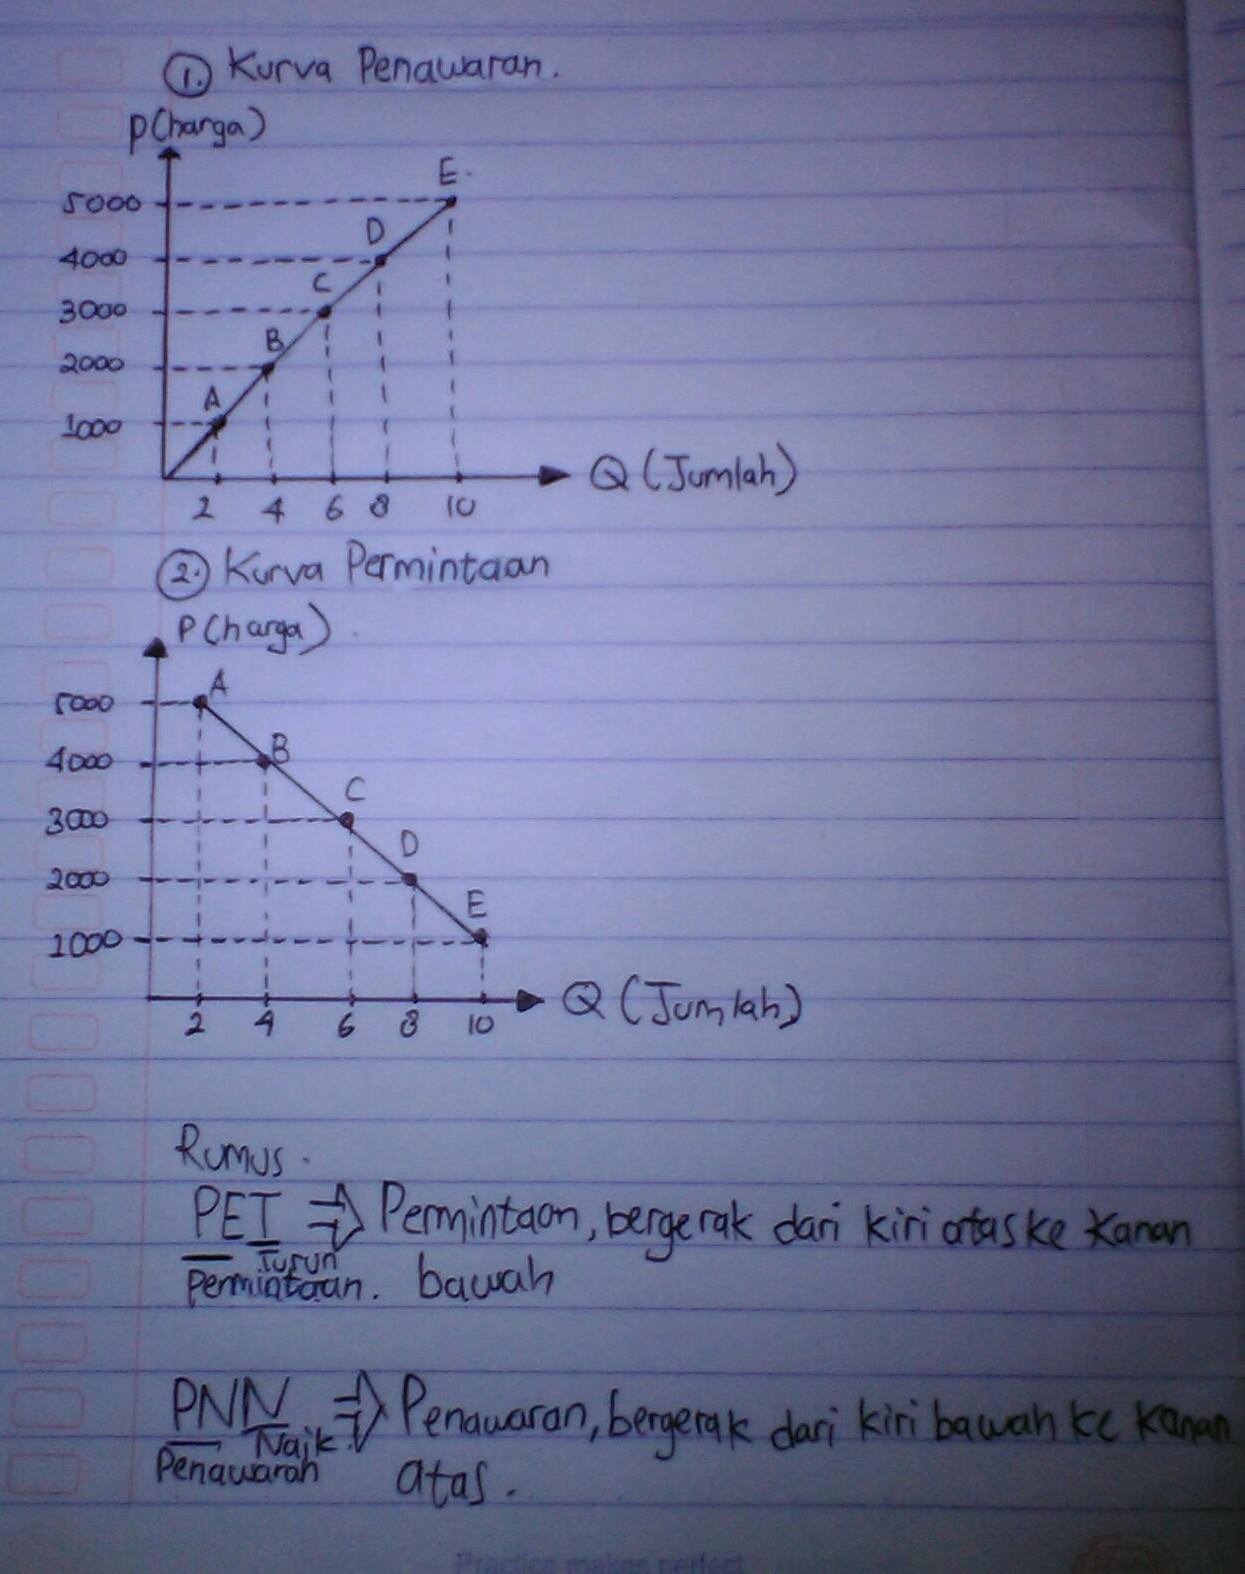 1. Kurva Penawaran.
P(harga)
E.
5000
D
4000
C
3000
B
2000
A
1000
Q (Jumlah)
2 4 6 8 10
2. Kurva Permintaan
P(harga)
A
5000
B
4000
C
3000
D
2000
E
1000
Q (Jumlah)
2 4 6 8 10
Rumus.
PET ⇒ Permintaan, bergerak dari kiri atas ke kanan
Turun
Permintaan. bawah
PNN ⇒ Penawaran, bergerak dari kiri bawah ke kanan
Naik.
Penawaran atas.
Practice makes perfect